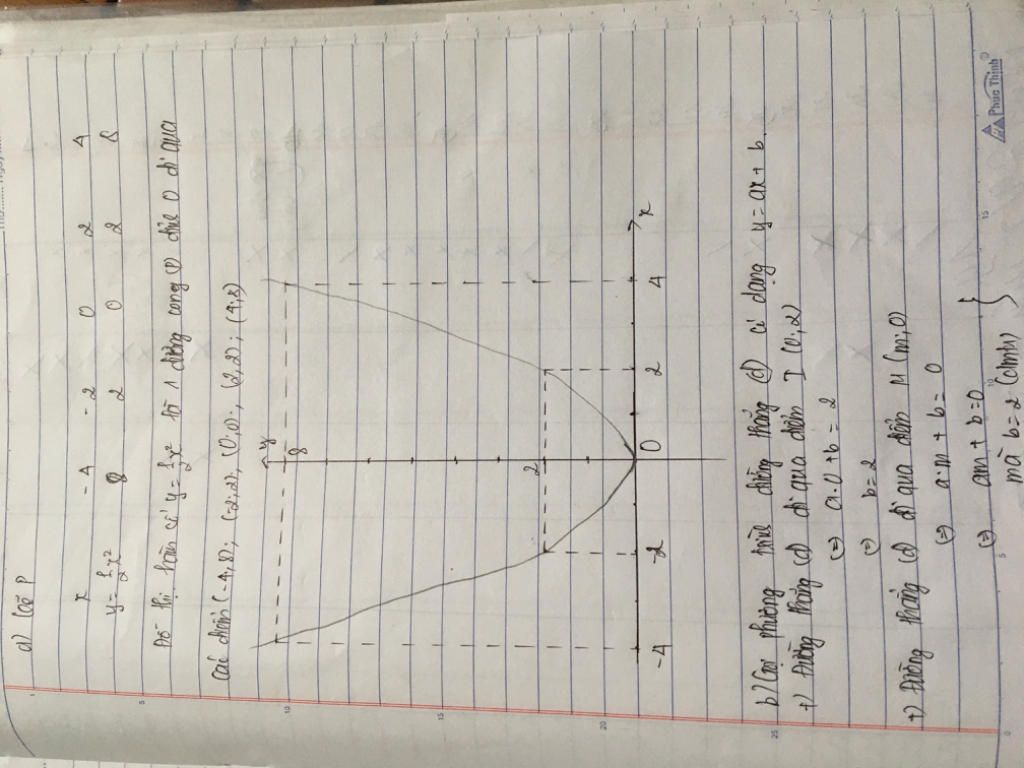 a) Có P
x -4 -2 0 2 4
y = 1/2 x² 8 2 0 2 8
Đồ thị hàm số y = 1/2 x² là 1 đường cong (P) đỉnh O đi qua
Các điểm (-4,8); (-2,2), (0,0), (2,2); (4,8)
y
8
2
-4 -2 0 2 4 x
b) Gọi phương trình đường thẳng (d) có dạng y = ax + b
+) Đường thẳng (d) đi qua điểm I (0;2)
(=) a.0 + b = 2
(=) b = 2
+) Đường thẳng (d) đi qua điểm M (m;0)
(=) a.m + b = 0
(=) am + b = 0
mà b = 2 (chmtr) }
Phuc Thinh
5
10
15
20
25
0
5
10
15